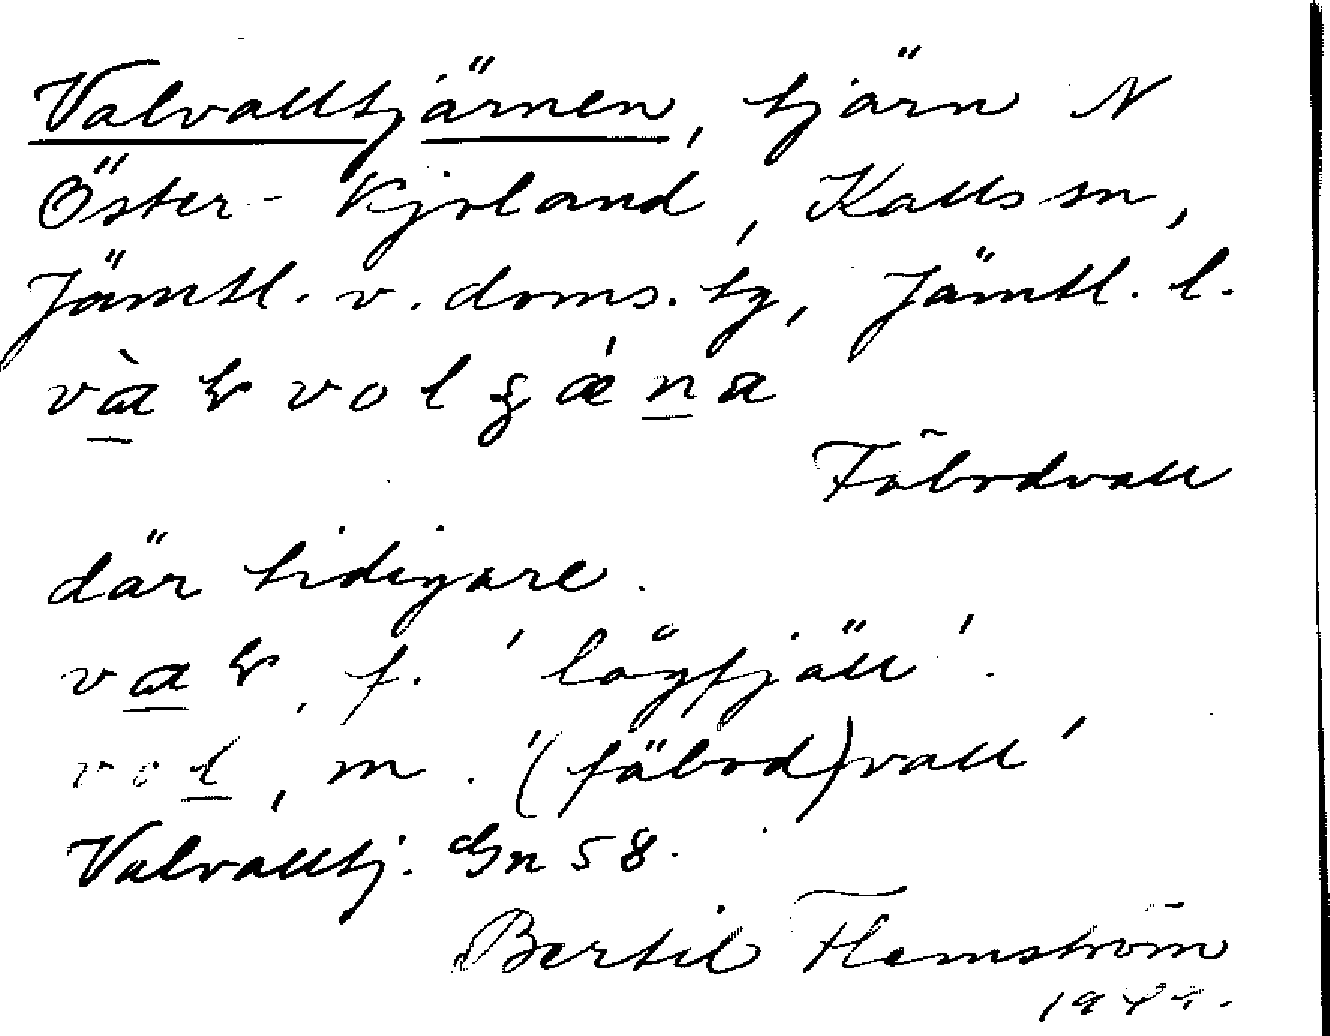 Valvalltjärnen, tjärn N
Öster-Kjoland, Kalls sn,
Jämtl. v. doms. tg, Jämtl. l.
Fäbodvall
där tidigare.
f. 'lågfjäll'.
vol, m. '(fäbod)vall'
Valvalltj. Gn 58.
Bertil Flemström